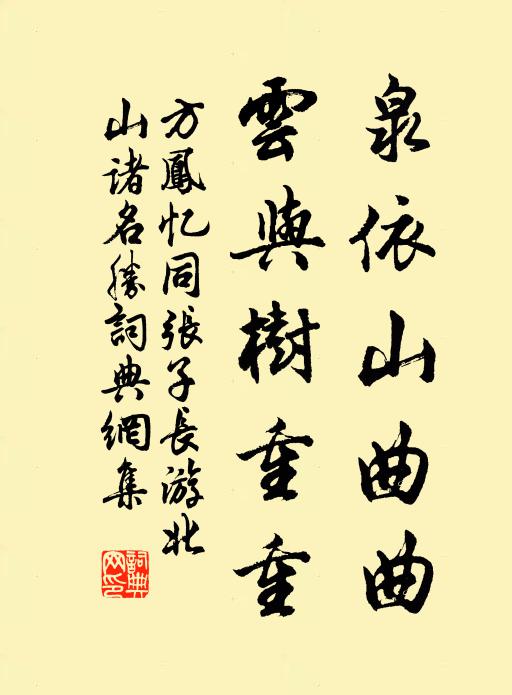 泉依山曲曲
雲與樹重重
方鳳忆同張子長游北
山諸名勝詞典網集
詞典網印